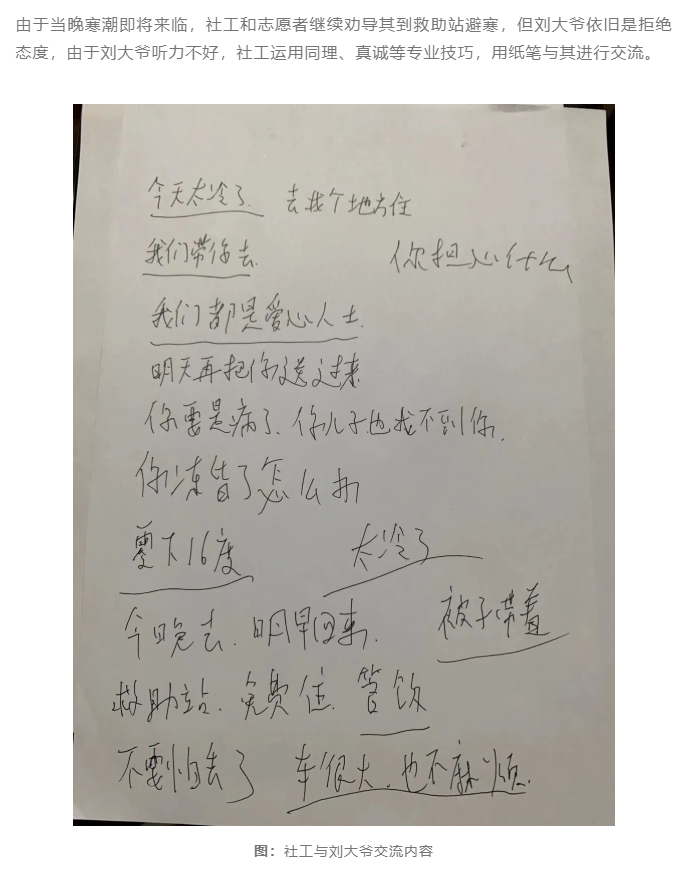 由于当晚寒潮即将来临，社工和志愿者继续劝导其到救助站避寒，但刘大爷依旧是拒绝
态度，由于刘大爷听力不好，社工运用同理、真诚等专业技巧，用纸笔与其进行交流。
今天太冷了. 去找个地方住
我们带你去.
你担心什么
我们都是爱心人士.
明天再把你送过来
你要是病了、你儿子也找不到你.
你冻了怎么办
零下16度 太冷了
今晚去. 明早回来.
被子带着
救助站. 免费住. 管饭
不要怕丢了 车很大. 也不麻烦.
图：社工与刘大爷交流内容